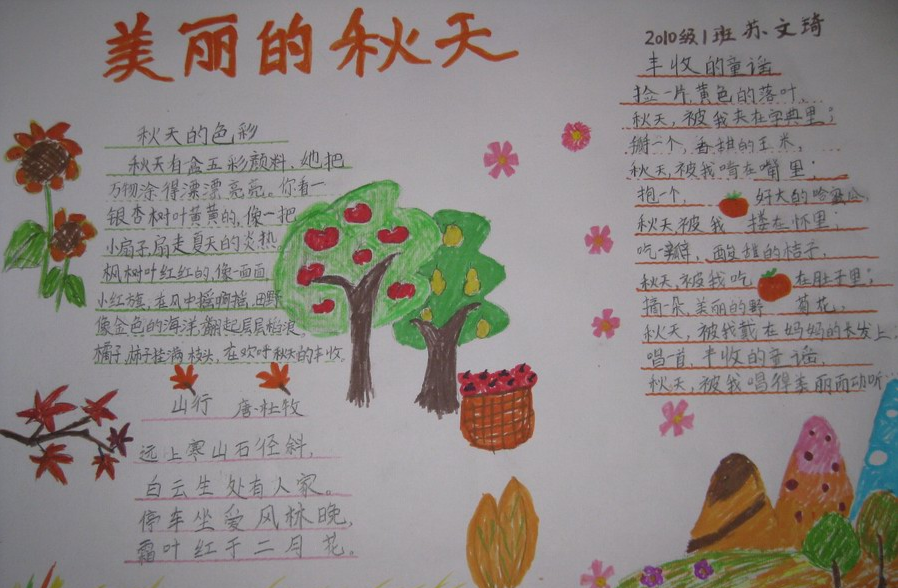 美丽的秋天
秋天的色彩
秋天有盒五彩颜料,她把
万物涂得漂漂亮亮。你看一
银杏树叶黄黄的,像一把
小扇子,扇走夏天的炎热
枫树叶红红的,像一面面
小红旗,在风中摇啊摇,田野
像金色的海洋,翻起层层稻浪。
橘子,柿子挂满枝头,在欢呼秋天的丰收.
山行 唐·杜牧
远上寒山石径斜,
白云生处有人家。
停车坐爱风林晚,
霜叶红于二月花。
2010级1班苏文琦
丰收的童谣
捡一片,黄色的落叶,
秋天,被我夹在字典里;
掰一个,香甜的玉米,
秋天,被我啃在嘴里;
抱一个,好大的哈密瓜,
秋天被我搂在怀里;
吃一瓣,酸甜的桔子,
秋天,被我吃在肚子里;
摘一朵,美丽的野菊花,
秋天,被我戴在妈妈的长发上;
唱一首,丰收的童谣,
秋天,被我唱得美丽而动听…